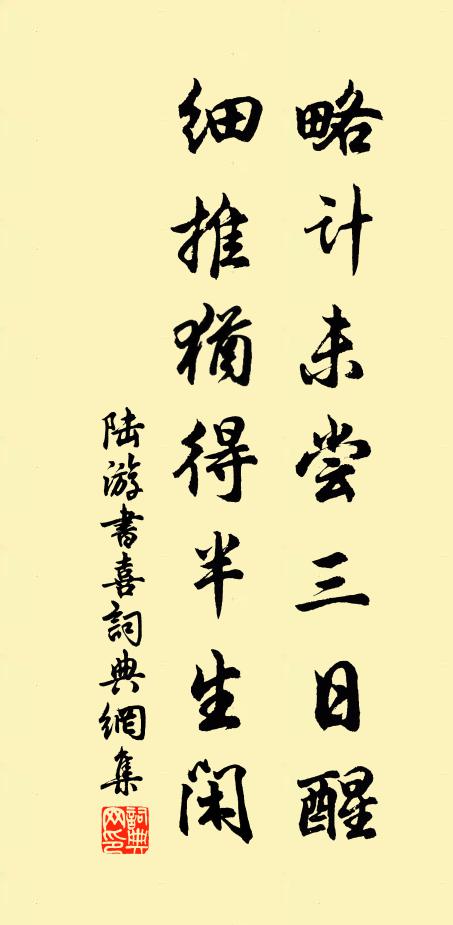 略计未尝三日醒
细推犹得半生闲
陆游书喜詞典網集
詞典網印